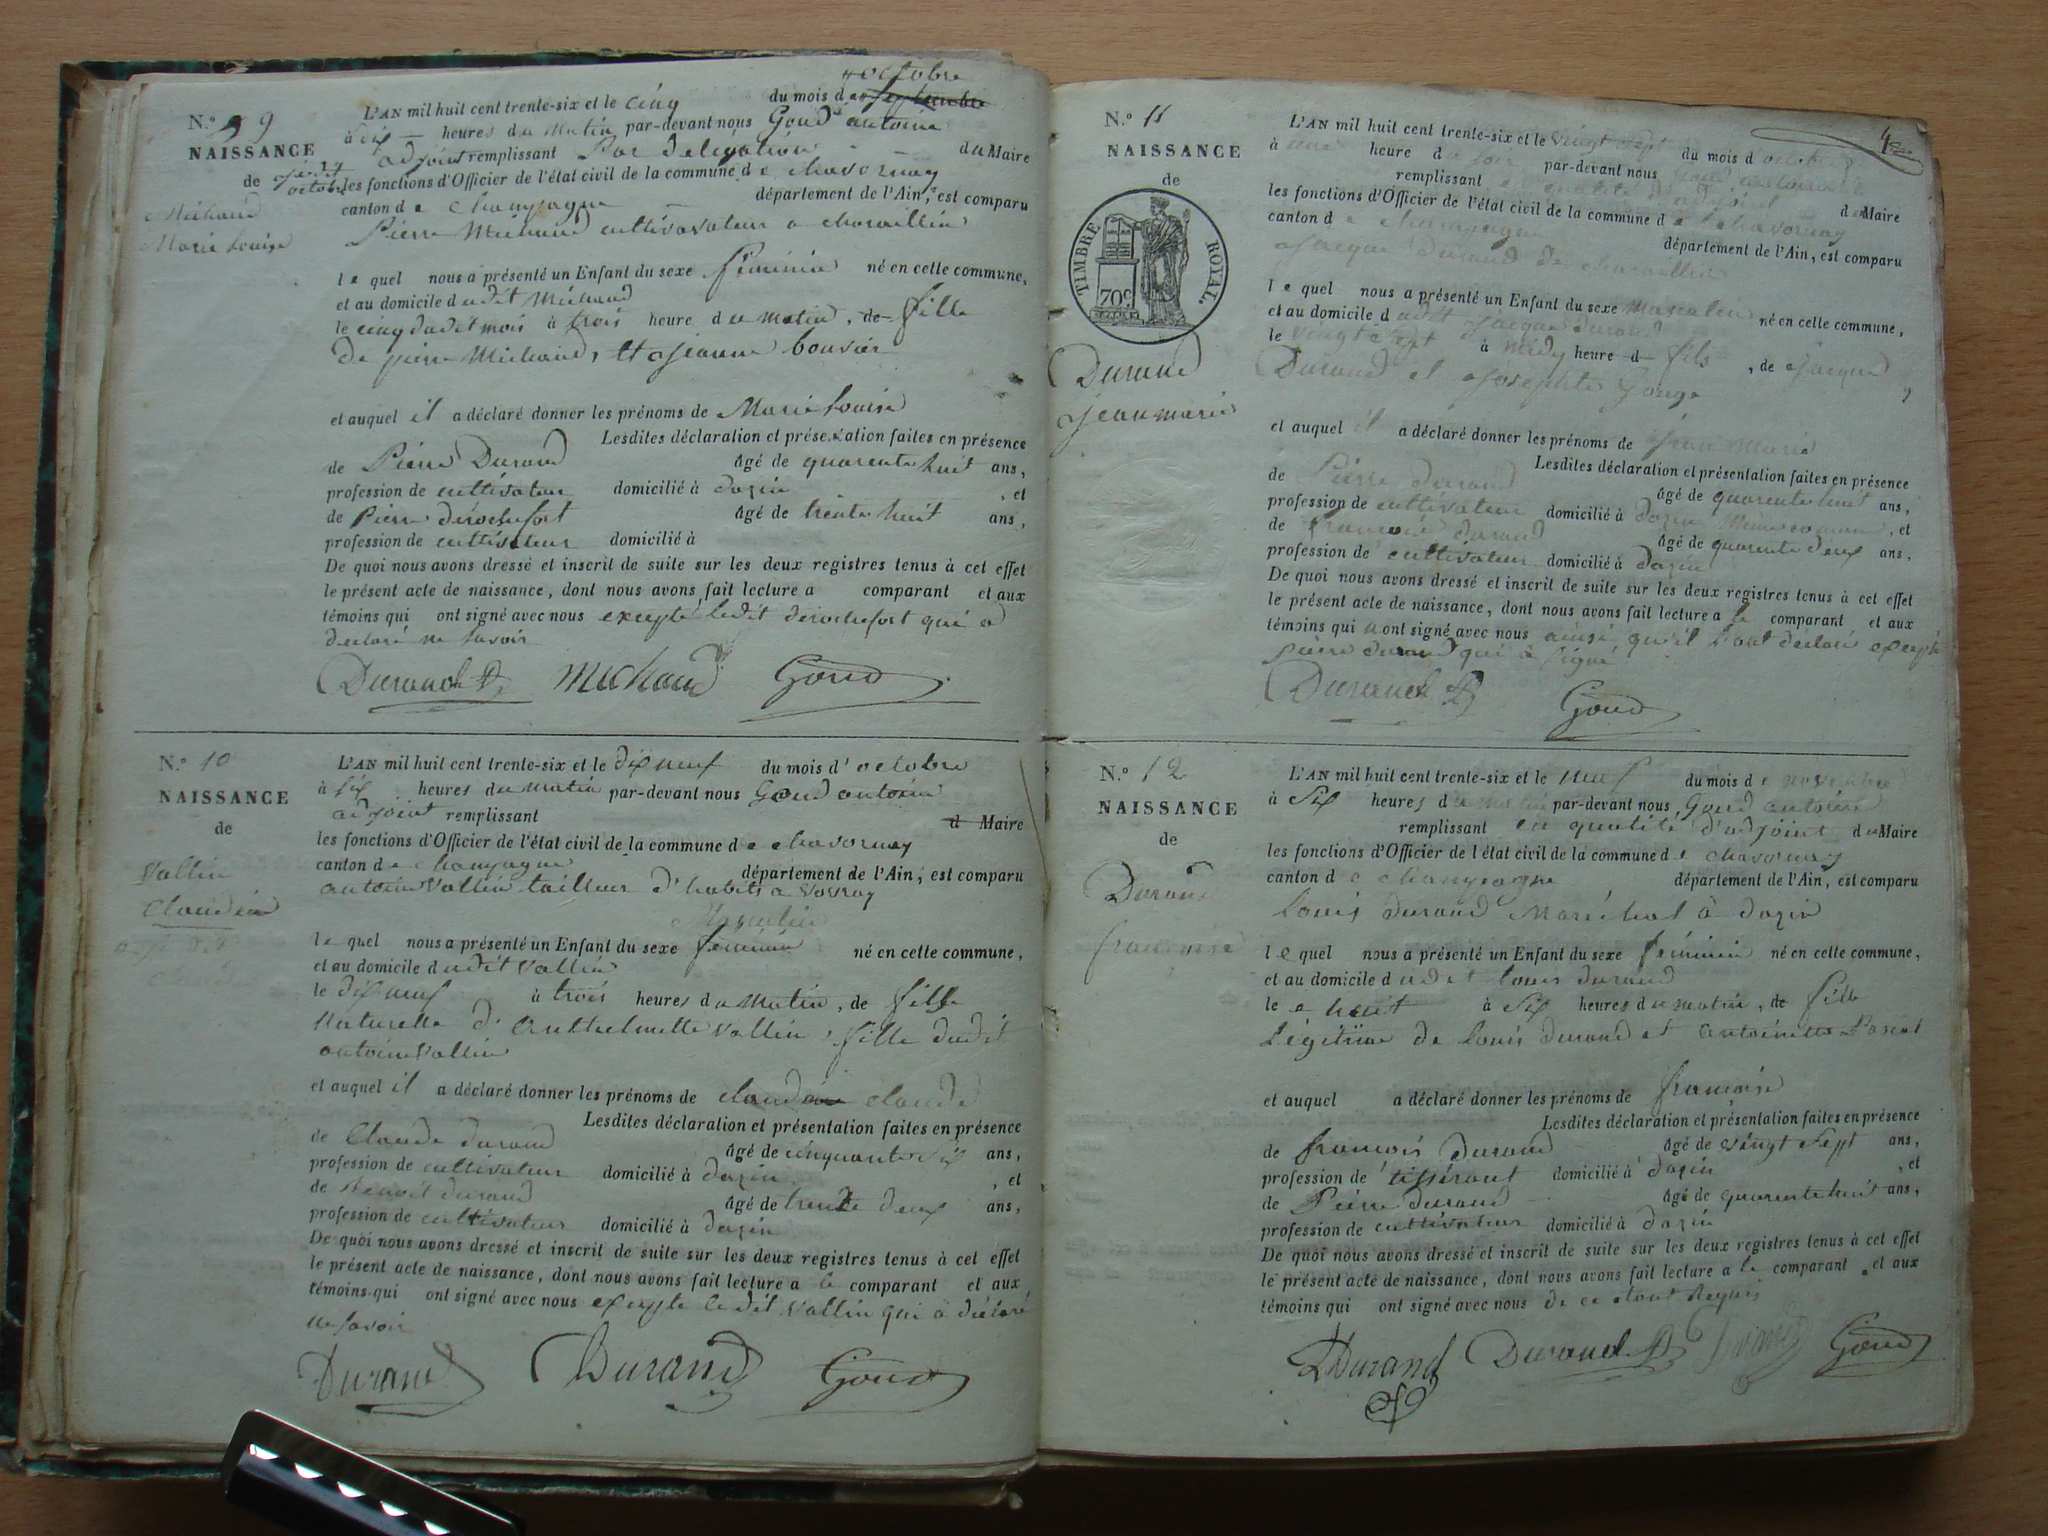 octobre
N.º 9
NAISSANCE
de
Michaud
Marie Louise
L'AN mil huit cent trente-six et le cinq du mois d septembre
à six heures du Matin par-devant nous Goud antoine
adjoint remplissant Par delegation du Maire
les fonctions d'Officier de l'état civil de la commune de chavornay
canton de Champagne département de l'Ain, est comparu
Pierre Michaud cultivateur a charaillin
le quel nous a présenté un Enfant du sexe feminin né en cette commune,
et au domicile dudit Michaud
le cinq dudit mois à trois heure du Matin, de fille
de pierre Michaud, Et jeanne bouvier
et auquel il a déclaré donner les prénoms de Marie Louise
Lesdites déclaration et présentation faites en présence
de Pierre Durand âgé de quarente huit ans,
profession de cultivateur domicilié à dazin, et
de Pierre derochefort âgé de trente huit ans,
profession de cultivateur domicilié à
De quoi nous avons dressé et inscrit de suite sur les deux registres tenus à cet effet
le présent acte de naissance, dont nous avons fait lecture a comparant et aux
témoins qui ont signé avec nous excepté ledit derochefort qui a
declaré ne savoir
Durand P Michaud Goud
N.º 10
NAISSANCE
de
Vallin
Claudine
L'AN mil huit cent trente-six et le dix neuf du mois d'octobre
à six heures du matin par-devant nous Goud antoine
adjoint remplissant d Maire
les fonctions d'Officier de l'état civil de la commune de chavornay
canton de Champagne département de l'Ain, est comparu
antoine Vallin tailleur d'habits a Vovray
Masculin
le quel nous a présenté un Enfant du sexe feminin né en cette commune,
et au domicile dudit Vallin
le dix neuf à trois heures du Matin, de fille
Naturelle d'Anthelmette Vallin, fille dudit
antoine Vallin
et auquel il a déclaré donner les prénoms de claudine claude
Lesdites déclaration et présentation faites en présence
de Claude durand âgé de cinquante six ans,
profession de cultivateur domicilié à dazin, et
de Benoit durand âgé de trente deux ans,
profession de cultivateur domicilié à dazin
De quoi nous avons dressé et inscrit de suite sur les deux registres tenus à cet effet
le présent acte de naissance, dont nous avons fait lecture a le comparant et aux
témoins qui ont signé avec nous excepte ledit Vallin qui a déclaré
ne savoir
Durand Durand Goud
4
N.º 11
NAISSANCE
de
TIMBRE ROYAL.
70c
Durand
jean marie
L'AN mil huit cent trente-six et le vingt sept du mois d'octobre
à une heure du soir par-devant nous Goud antoine
remplissant en qualité d'adjoint du Maire
les fonctions d'Officier de l'état civil de la commune de chavornay
canton de champagne département de l'Ain, est comparu
Jacque Durand de charaillin
le quel nous a présenté un Enfant du sexe masculin né en cette commune,
et au domicile dudit jacque durand
le vingt sept à midy heure d fils, de jacque
Durand et josephte
et auquel il a déclaré donner les prénoms de jean Marie
Lesdites déclaration et présentation faites en présence
de Pierre durand âgé de quarente huit ans,
profession de cultivateur domicilié à dazin, et
de francois durand âgé de quarente deux ans,
profession de cultivateur domicilié à dazin
De quoi nous avons dressé et inscrit de suite sur les deux registres tenus à cet effet
le présent acte de naissance, dont nous avons fait lecture a le comparant et aux
témoins qui n'ont signé avec nous ainsi qu'il l'ont declaré excepté
pierre durand qui a signé
Durand P Goud
N.º 12
NAISSANCE
de
Durand
francoise
L'AN mil huit cent trente-six et le neuf du mois de novembre
à six heures du matin par-devant nous Goud antoine
remplissant en qualité d'adjoint du Maire
les fonctions d'Officier de l'état civil de la commune de chavornay
canton de champagne département de l'Ain, est comparu
Louis durand Maréchal à dazin
le quel nous a présenté un Enfant du sexe feminin né en cette commune,
et au domicile dudit louis durand
le huit à six heures du matin, de fille
Légitime de louis durand et antoinette Pascal
et auquel a déclaré donner les prénoms de francoise
Lesdites déclaration et présentation faites en présence
de francois durand âgé de vingt sept ans,
profession de tisserant domicilié à dazin, et
de Pierre durand âgé de quarente huit ans,
profession de cultivateur domicilié à dazin
De quoi nous avons dressé et inscrit de suite sur les deux registres tenus à cet effet
le présent acte de naissance, dont nous avons fait lecture a le comparant et aux
témoins qui ont signé avec nous de ce etant Requis
LDurand Durand P Durand Goud